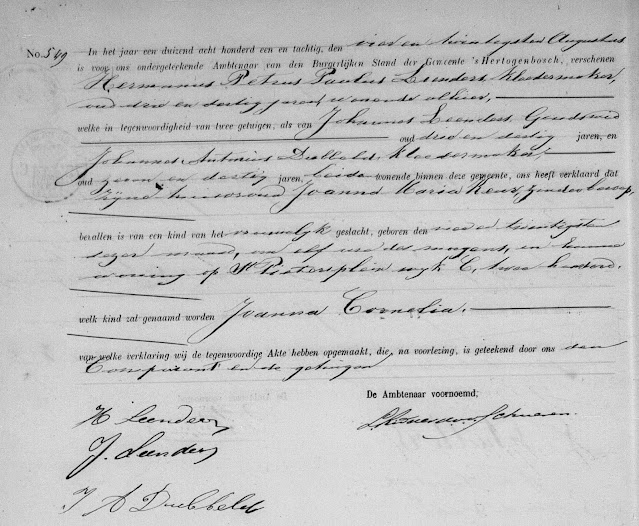 No. 549 In het jaar een duizend acht honderd een en tachtig, den vier en twintigsten Augustus
is voor ons ondergeteekende Ambtenaar van den Burgerlijken Stand der Gemeente 's Hertogenbosch, verschenen
Hermanus Petrus Paulus Leenders, kleedermaker,
oud drie en dertig jaren, wonende alhier,
welke in tegenwoordigheid van twee getuigen, als van Johannes Leenders, Goudsmid
oud drie en dertig jaren, en
Johannes Antonius Dubbeld, kleedermaker,
oud zeven en dertig jaren, beide wonende binnen deze gemeente, ons heeft verklaard dat
zijne huisvrouw Joanna Maria zonder beroep,
bevallen is van een kind van het vrouwelijk geslacht, geboren den twintigsten
dezer maand, om elf ure des morgens, in hunne
woning op St Pieters plein wijk C, twee honderd.
welk kind zal genaamd worden Joanna Cornelia.
van welke verklaring wij de tegenwoordige Akte hebben opgemaakt, die, na voorlezing, is geteekend door ons den
Comparant en de getuigen
De Ambtenaar voornoemd,
H Leenders
J. Leenders
J A Dubbeld